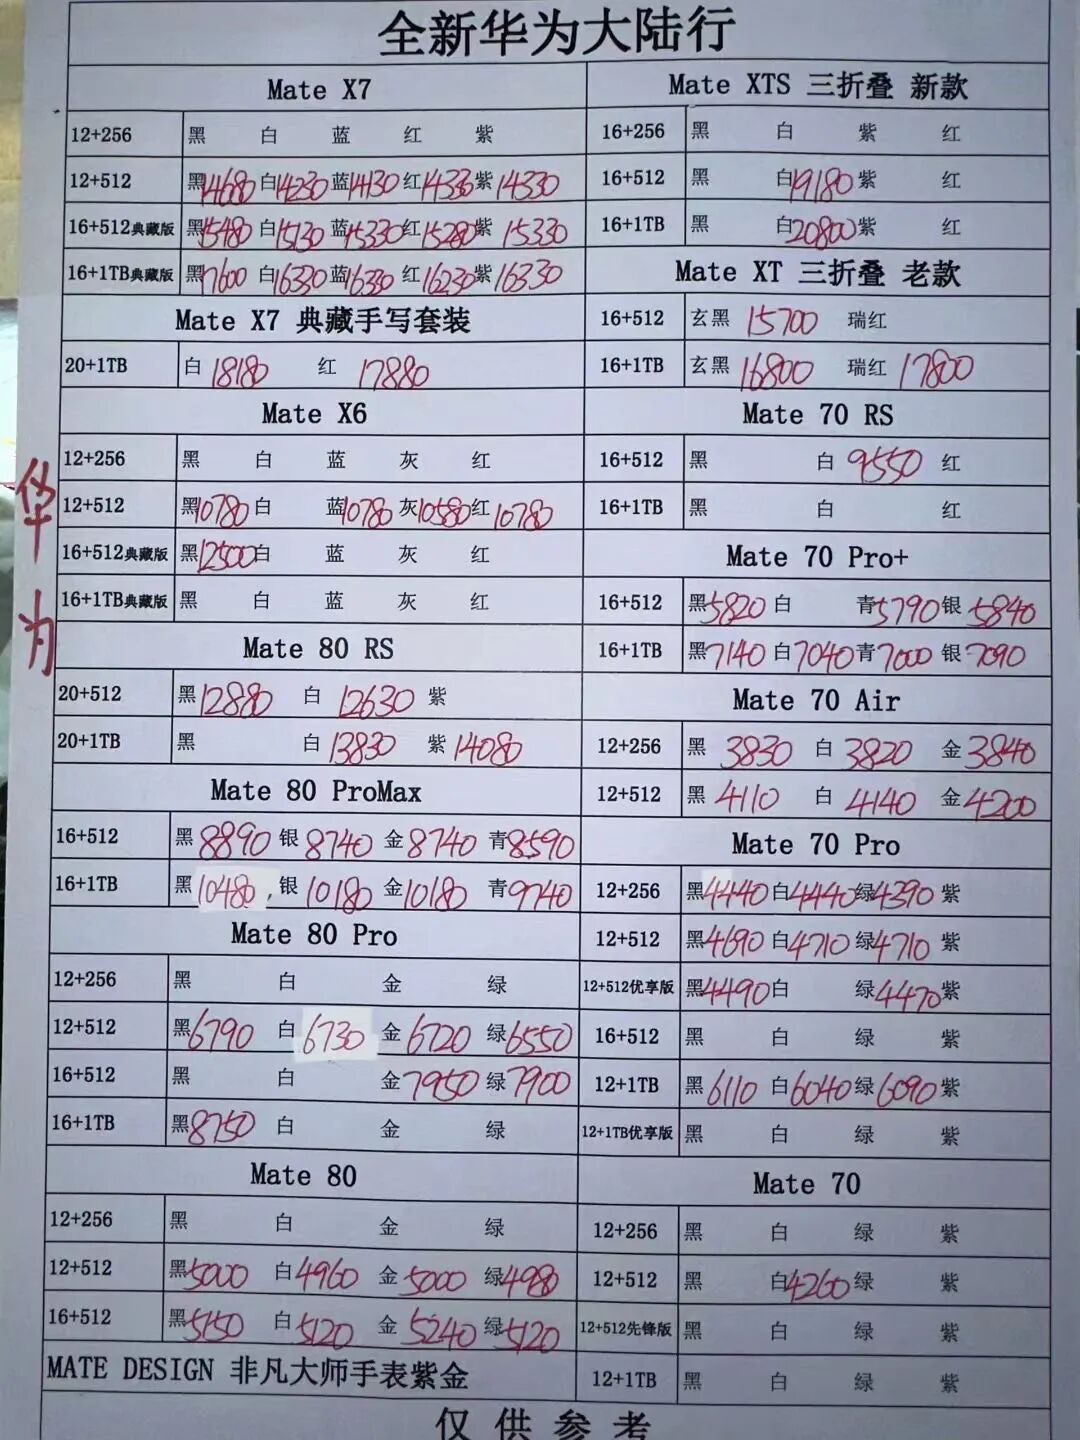 全新华为大陆行
华为
Mate X7
12+256 黑 白 蓝 红 紫
12+512 黑14680 白14230 蓝14130 红14330 紫14330
16+512典藏版 黑15480 白15130 蓝15330 红15280 紫15330
16+1TB典藏版 黑17600 白16330 蓝16330 红16230 紫16330
Mate X7 典藏手写套装
20+1TB 白18180 红17880
Mate X6
12+256 黑 白 蓝 灰 红
12+512 黑10780 白 蓝10780 灰10580 红10780
16+512典藏版 黑12500 白 蓝 灰 红
16+1TB典藏版 黑 白 蓝 灰 红
Mate 80 RS
20+512 黑12880 白12630 紫
20+1TB 黑 白13830 紫14080
Mate 80 ProMax
16+512 黑8890 银8740 金8740 青8590
16+1TB 黑10480, 银10180 金10180 青9740
Mate 80 Pro
12+256 黑 白 金 绿
12+512 黑6790 白6730 金6720 绿6550
16+512 黑 白 金7950 绿7900
16+1TB 黑8750 白 金 绿
Mate 80
12+256 黑 白 金 绿
12+512 黑5000 白4960 金5000 绿4980
16+512 黑5150 白5120 金5240 绿5120
MATE DESIGN 非凡大师手表紫金
Mate XTS 三折叠 新款
16+256 黑 白 紫 红
16+512 黑 白19180 紫 红
16+1TB 黑 白20800 紫 红
Mate XT 三折叠 老款
16+512 玄黑15700 瑞红
16+1TB 玄黑16800 瑞红17800
Mate 70 RS
16+512 黑 白9550 红
16+1TB 黑 白 红
Mate 70 Pro+
16+512 黑5820 白 青5790 银5840
16+1TB 黑7140 白7040 青7000 银7090
Mate 70 Air
12+256 黑3830 白3820 金3840
12+512 黑4110 白4140 金4200
Mate 70 Pro
12+256 黑4440 白4440 绿4390 紫
12+512 黑4690 白4710 绿4710 紫
12+512优享版 黑4490 白 绿4470 紫
16+512 黑 白 绿 紫
12+1TB 黑6110 白6040 绿6090 紫
12+1TB优享版 黑 白 绿 紫
Mate 70
12+256 黑 白 绿 紫
12+512 黑 白4260 绿 紫
12+512先锋版 黑 白 绿 紫
12+1TB 黑 白 绿 紫
仅供参考